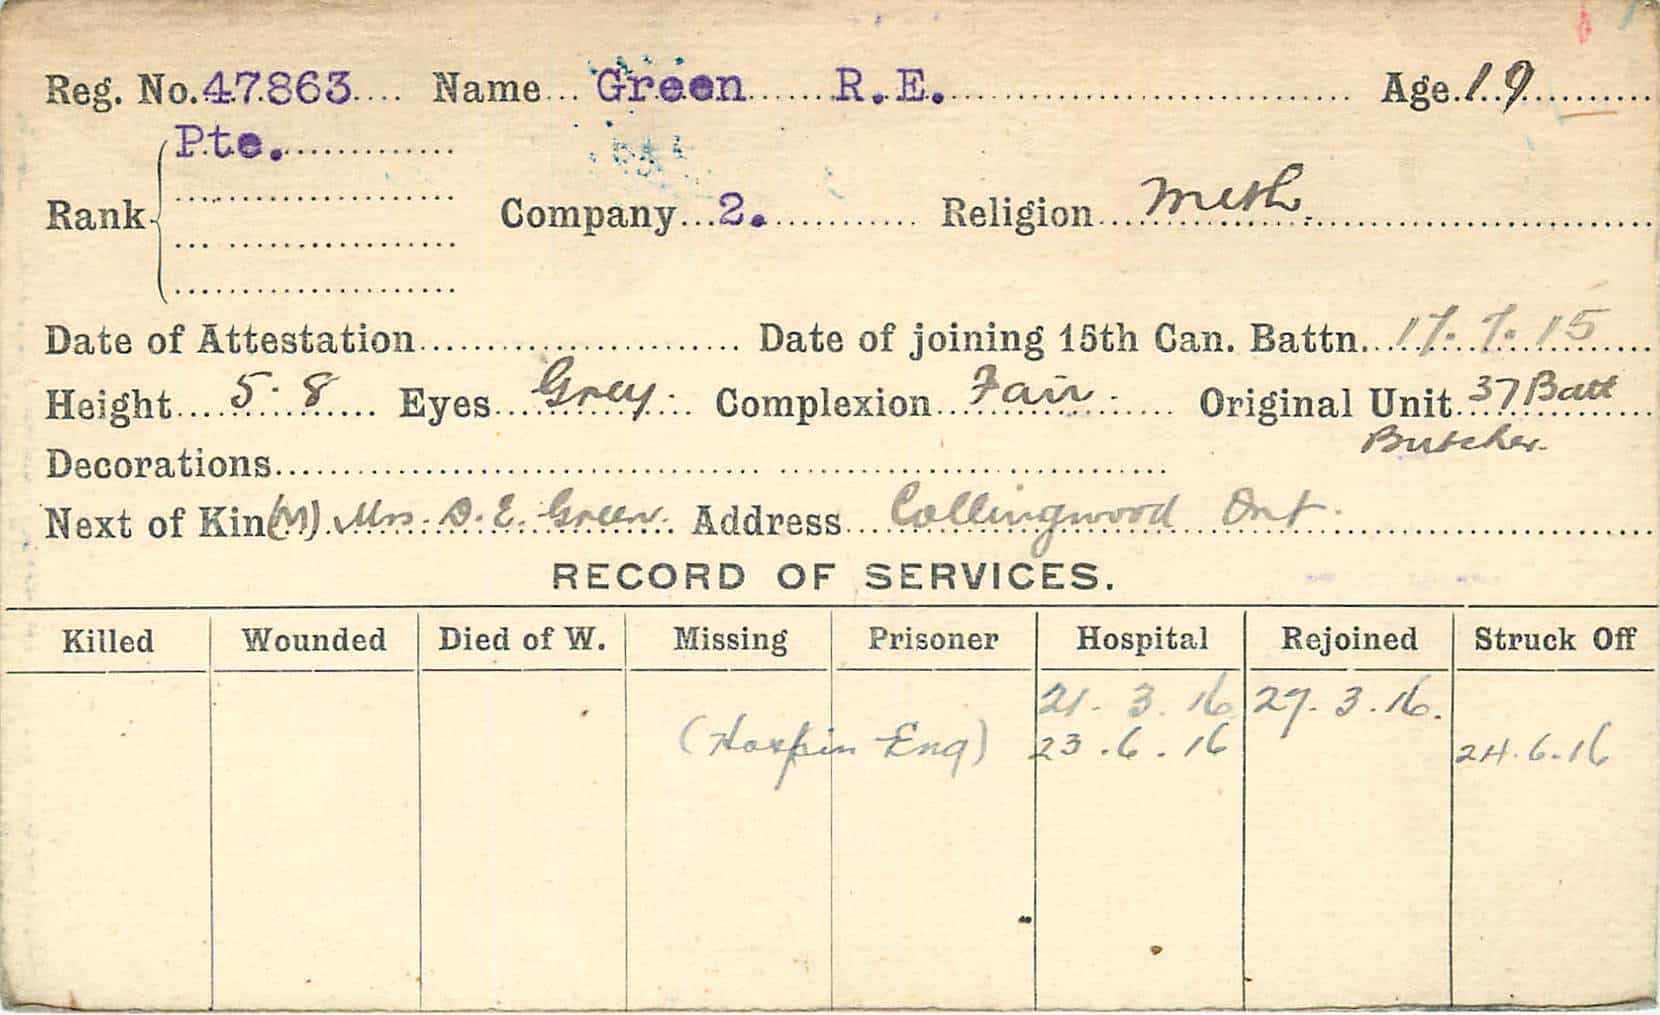 Reg. No. 47863 Name Green R.E. Age 19
Pte.
Rank Company 2. Religion Meth.
Date of Attestation Date of joining 15th Can. Battn. 17.7.15
Height 5.8 Eyes Grey. Complexion Fair. Original Unit 37 Batt
Butcher.
Decorations
Next of Kin (M) Mrs. D. E. Green. Address Collingwood Ont.
RECORD OF SERVICES.
Killed Wounded Died of W. Missing Prisoner Hospital Rejoined Struck Off
21. 3. 16 27. 3. 16.
(Hosp in Eng) 23. 6. 16 24. 6. 16